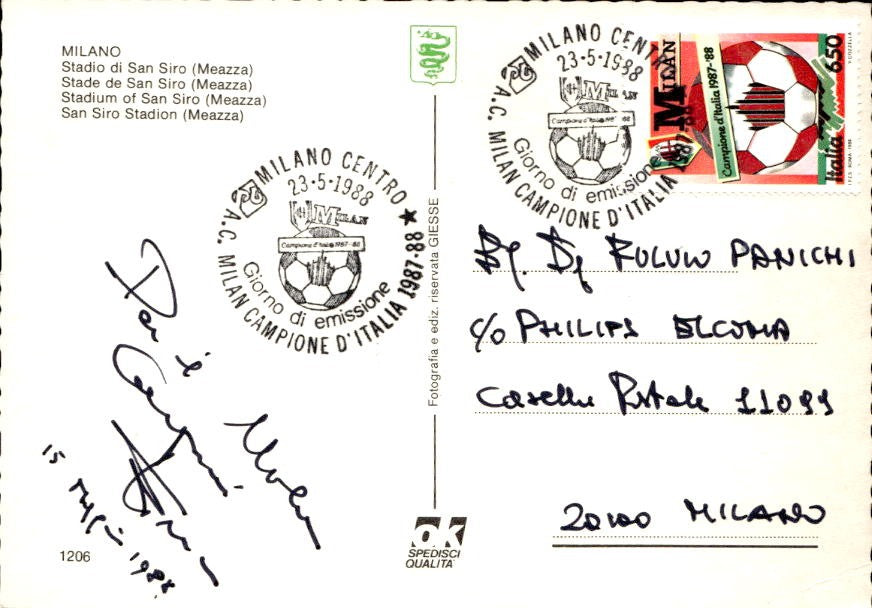 MILANO
Stadio di San Siro (Meazza)
Stade de San Siro (Meazza)
Stadium of San Siro (Meazza)
San Siro Stadion (Meazza)
MILANO CENTRO
23-5-1988
MILAN
Campione d'Italia 1987-88
Giorno di emissione
A.C. MILAN CAMPIONE D'ITALIA 1987-88
MILANO CENTRO
23-5-1988
MILAN
Campione d'Italia 1987-88
Giorno di emissione
A.C. MILAN CAMPIONE D'ITALIA 1987-88
MILAN
1987-88
Campione d'Italia 1987-'88
Italia 650
I.P.Z.S. ROMA 1988
Fotografia e ediz. riservata GIESSE
PANICHI
c/o PHILIPS ELCOMA
Casella Postale 11099
20100 MILANO
Per i
Milan
15 Maggio 1988
1206
ok
SPEDISCI
QUALITA'